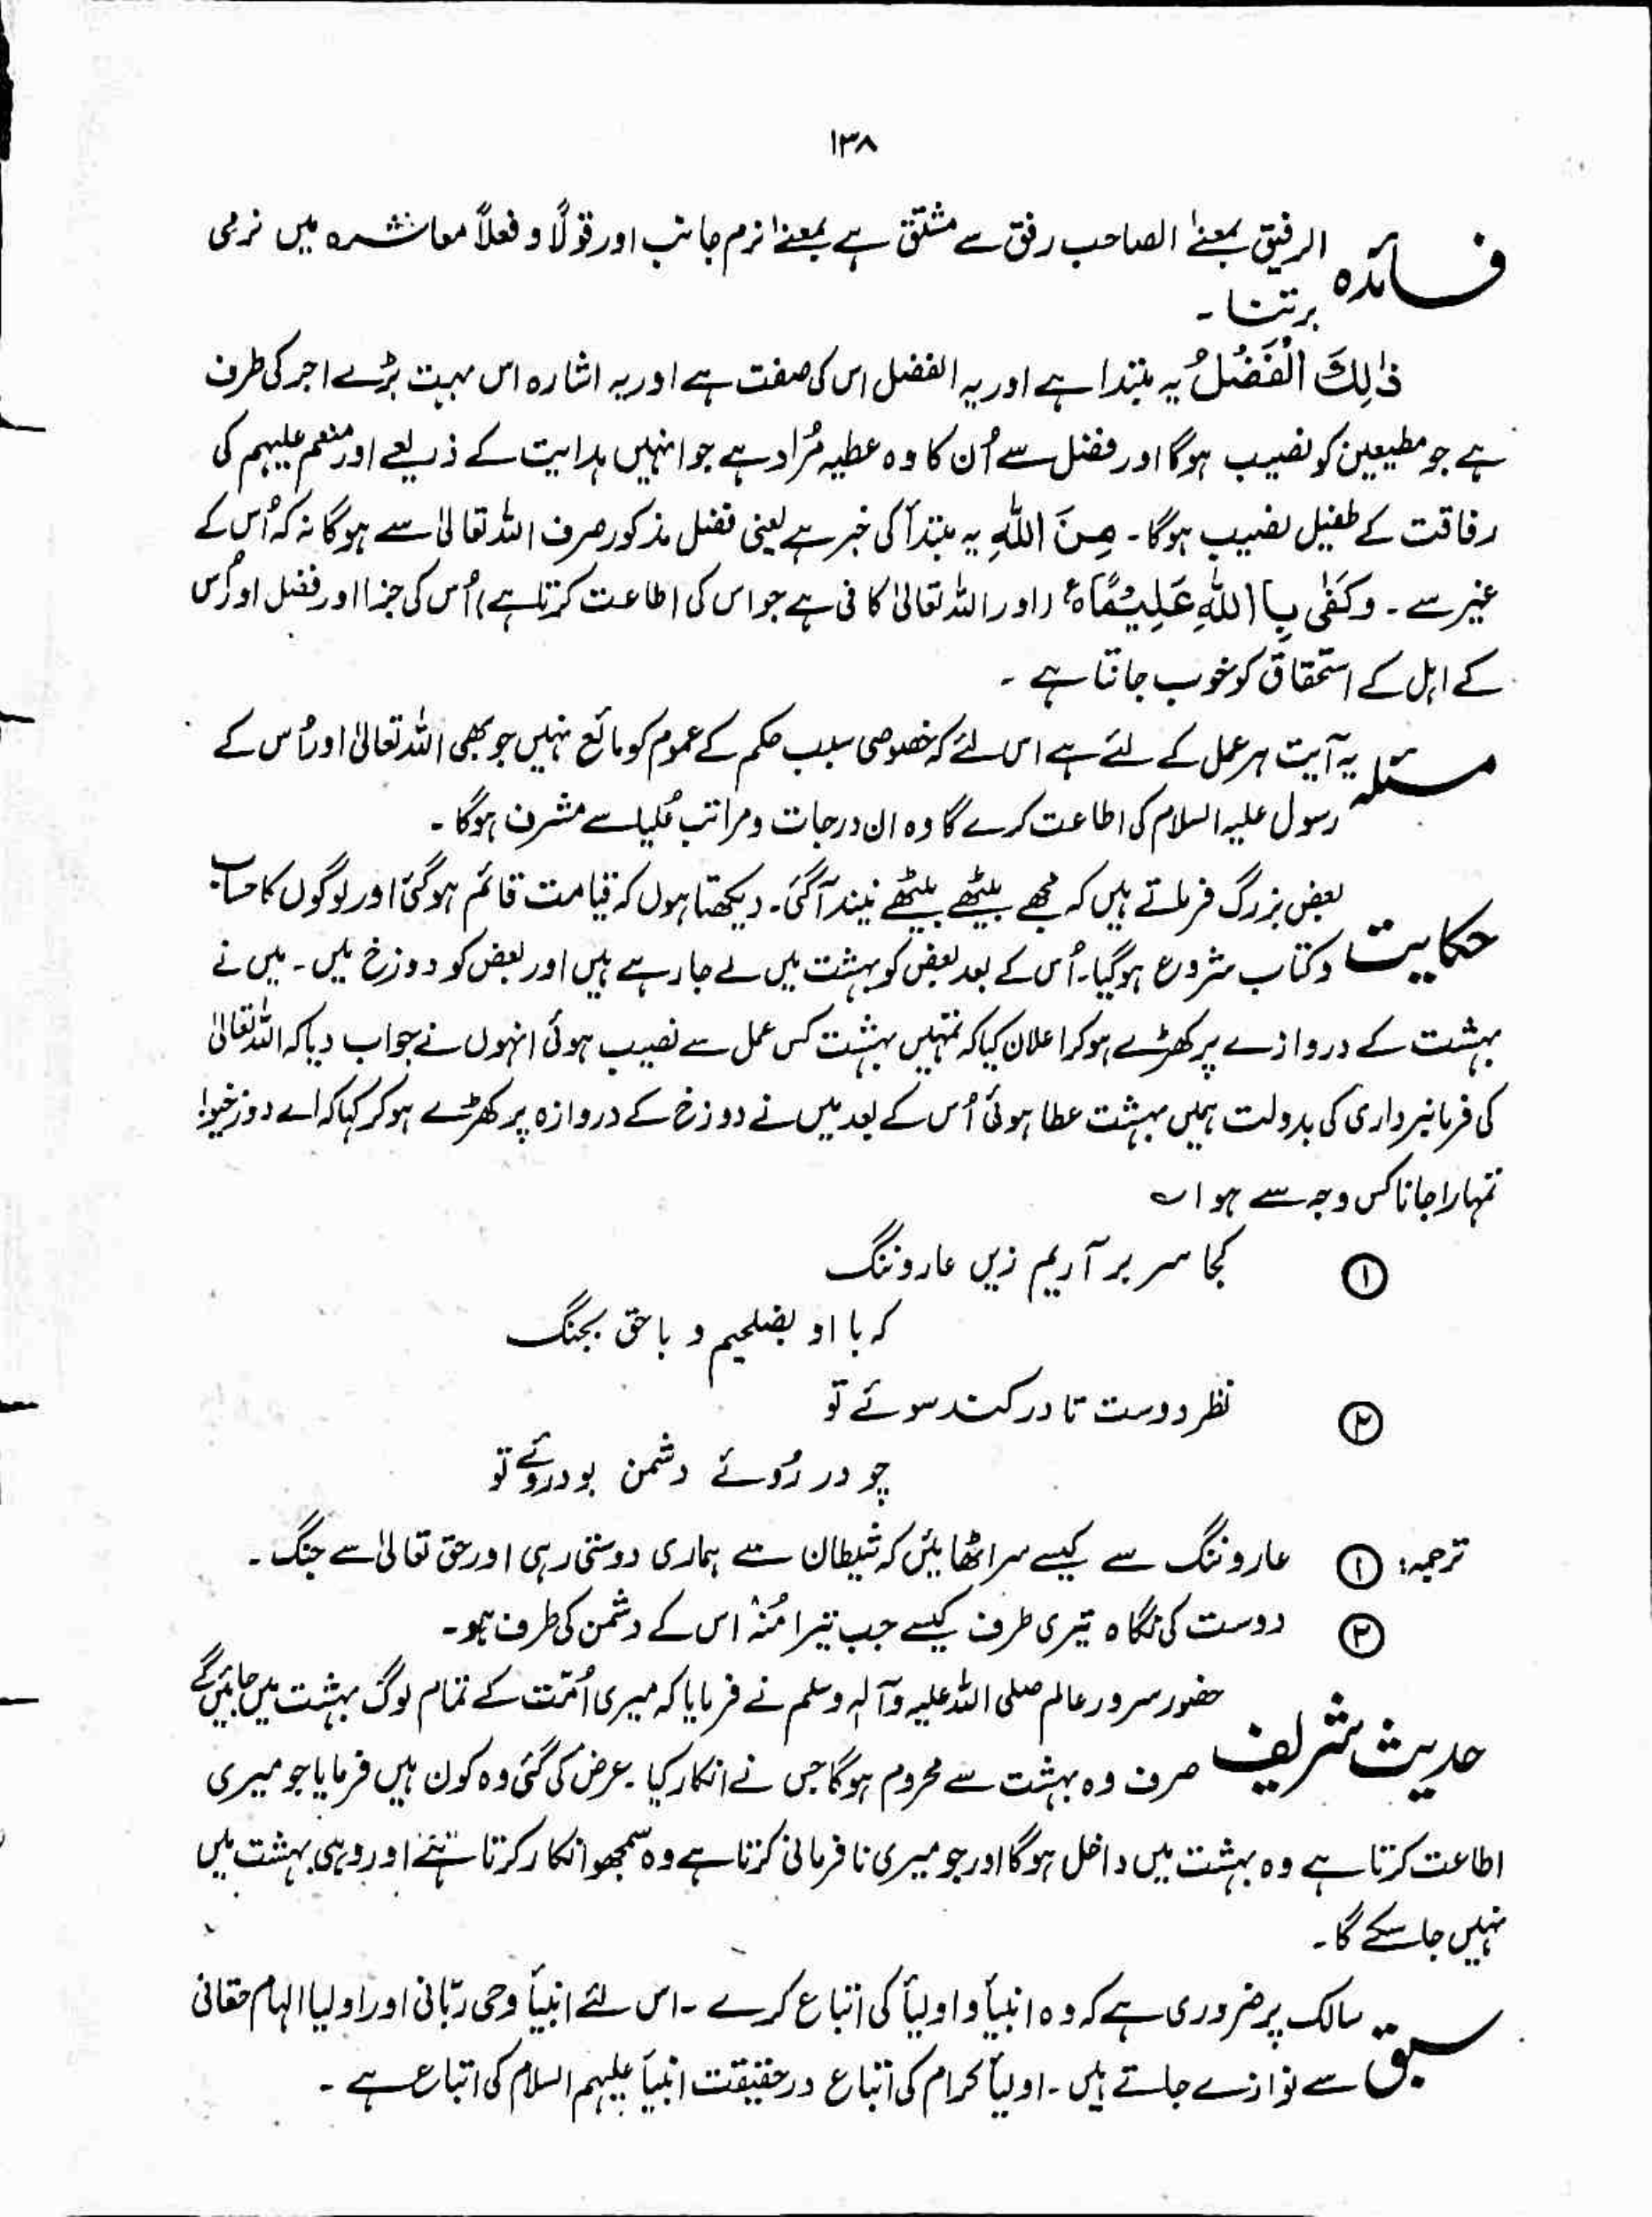 ۱۳۸
فائدہ الرفیق بمعنےٰ الصاحب رفق سے مشتق ہے بمعنےٰ نرم جانب اور قولاً و فعلاً معاشرہ میں نرمی
برتنا ۔
ذٰلِكَ الْفَضْلُ یہ مبتدا ہے اور یہ الفضل اس کی صفت ہے اور یہ اشارہ اس بہت بڑے اجر کی طرف
ہے جو مطیعین کو نصیب ہوگا اور فضل سے اُن کا وہ عطیہ مُراد ہے جو انہیں ہدایت کے ذریعے اور منعم علیہم کی
رفاقت کے طفیل نصیب ہوگا ۔ مِنَ اللّٰهِ یہ مبتدأ کی خبر ہے یعنی فضل مذکور صرف اللہ تعالیٰ سے ہوگا نہ کہ اُس کے
غیر سے ۔ وَكَفٰى بِاللّٰهِ عَلِيْمًا ہ (اور اللہ تعالیٰ کافی ہے جو اس کی اطاعت کرتا ہے) اُس کی جزا اور فضل اور اُس
کے اہل کے استحقاق کو خوب جانتا ہے ۔
مسئلہ یہ آیت ہر عمل کے لئے ہے اس لئے کہ خصوصی سبب حکم کے عموم کو مانع نہیں جو بھی اللہ تعالیٰ اور اُس کے
رسول علیہ السلام کی اطاعت کرے گا وہ ان درجات و مراتب عُلیا سے مشرف ہوگا ۔
حکایت بعض بزرگ فرماتے ہیں کہ مجھے بیٹھے بیٹھے نیند آگئی ۔ دیکھتا ہوں کہ قیامت قائم ہوگئی اور لوگوں کا حساب
و کتاب شروع ہوگیا ۔ اُس کے بعد بعض کو بہشت میں لے جا رہے ہیں اور بعض کو دوزخ میں ۔ میں نے
بہشت کے دروازے پر کھڑے ہو کر اعلان کیا کہ تمہیں بہشت کس عمل سے نصیب ہوئی انہوں نے جواب دیا کہ اللہ تعالیٰ
کی فرمانبرداری کی بدولت ہمیں بہشت عطا ہوئی اُس کے بعد میں نے دوزخ کے دروازہ پر کھڑے ہو کر کہا کہ اے دوزخیو!
تمہارا جانا کس وجہ سے ہوا ؎
① کجا سر بر آریم زیں عار و ننگ
کہ با او بصلحیم و با حق بجنگ
② نظر دوست تا در کند سوئے تو
چو در رُوئے دشمن بود روئے تو
ترجمہ: ① عار و ننگ سے کیسے سر اٹھائیں کہ شیطان سے ہماری دوستی رہی اور حق تعالیٰ سے جنگ ۔
② دوست کی نگاہ تیری طرف کیسے جب تیرا مُنہ اس کے دشمن کی طرف ہو ۔
حدیث شریف حضور سرور عالم صلی اللہ علیہ وآلہ وسلم نے فرمایا کہ میری اُمّت کے تمام لوگ بہشت میں جائیں گے
صرف وہ بہشت سے محروم ہوگا جس نے انکار کیا ۔ عرض کی گئی وہ کون ہیں فرمایا جو میری
اطاعت کرتا ہے وہ بہشت میں داخل ہوگا اور جو میری نافرمانی کرتا ہے وہ سمجھو انکار کرتا ہے اور وہی بہشت میں
نہیں جا سکے گا ۔
سبق سالک پر ضروری ہے کہ وہ انبیأ و اولیأ کی اتباع کرے ۔ اس لئے انبیأ وحی ربّانی اور اولیا الہام حقانی
سے نوازے جاتے ہیں ۔ اولیأ کرام کی اتباع درحقیقت انبیأ علیہم السلام کی اتباع ہے ۔